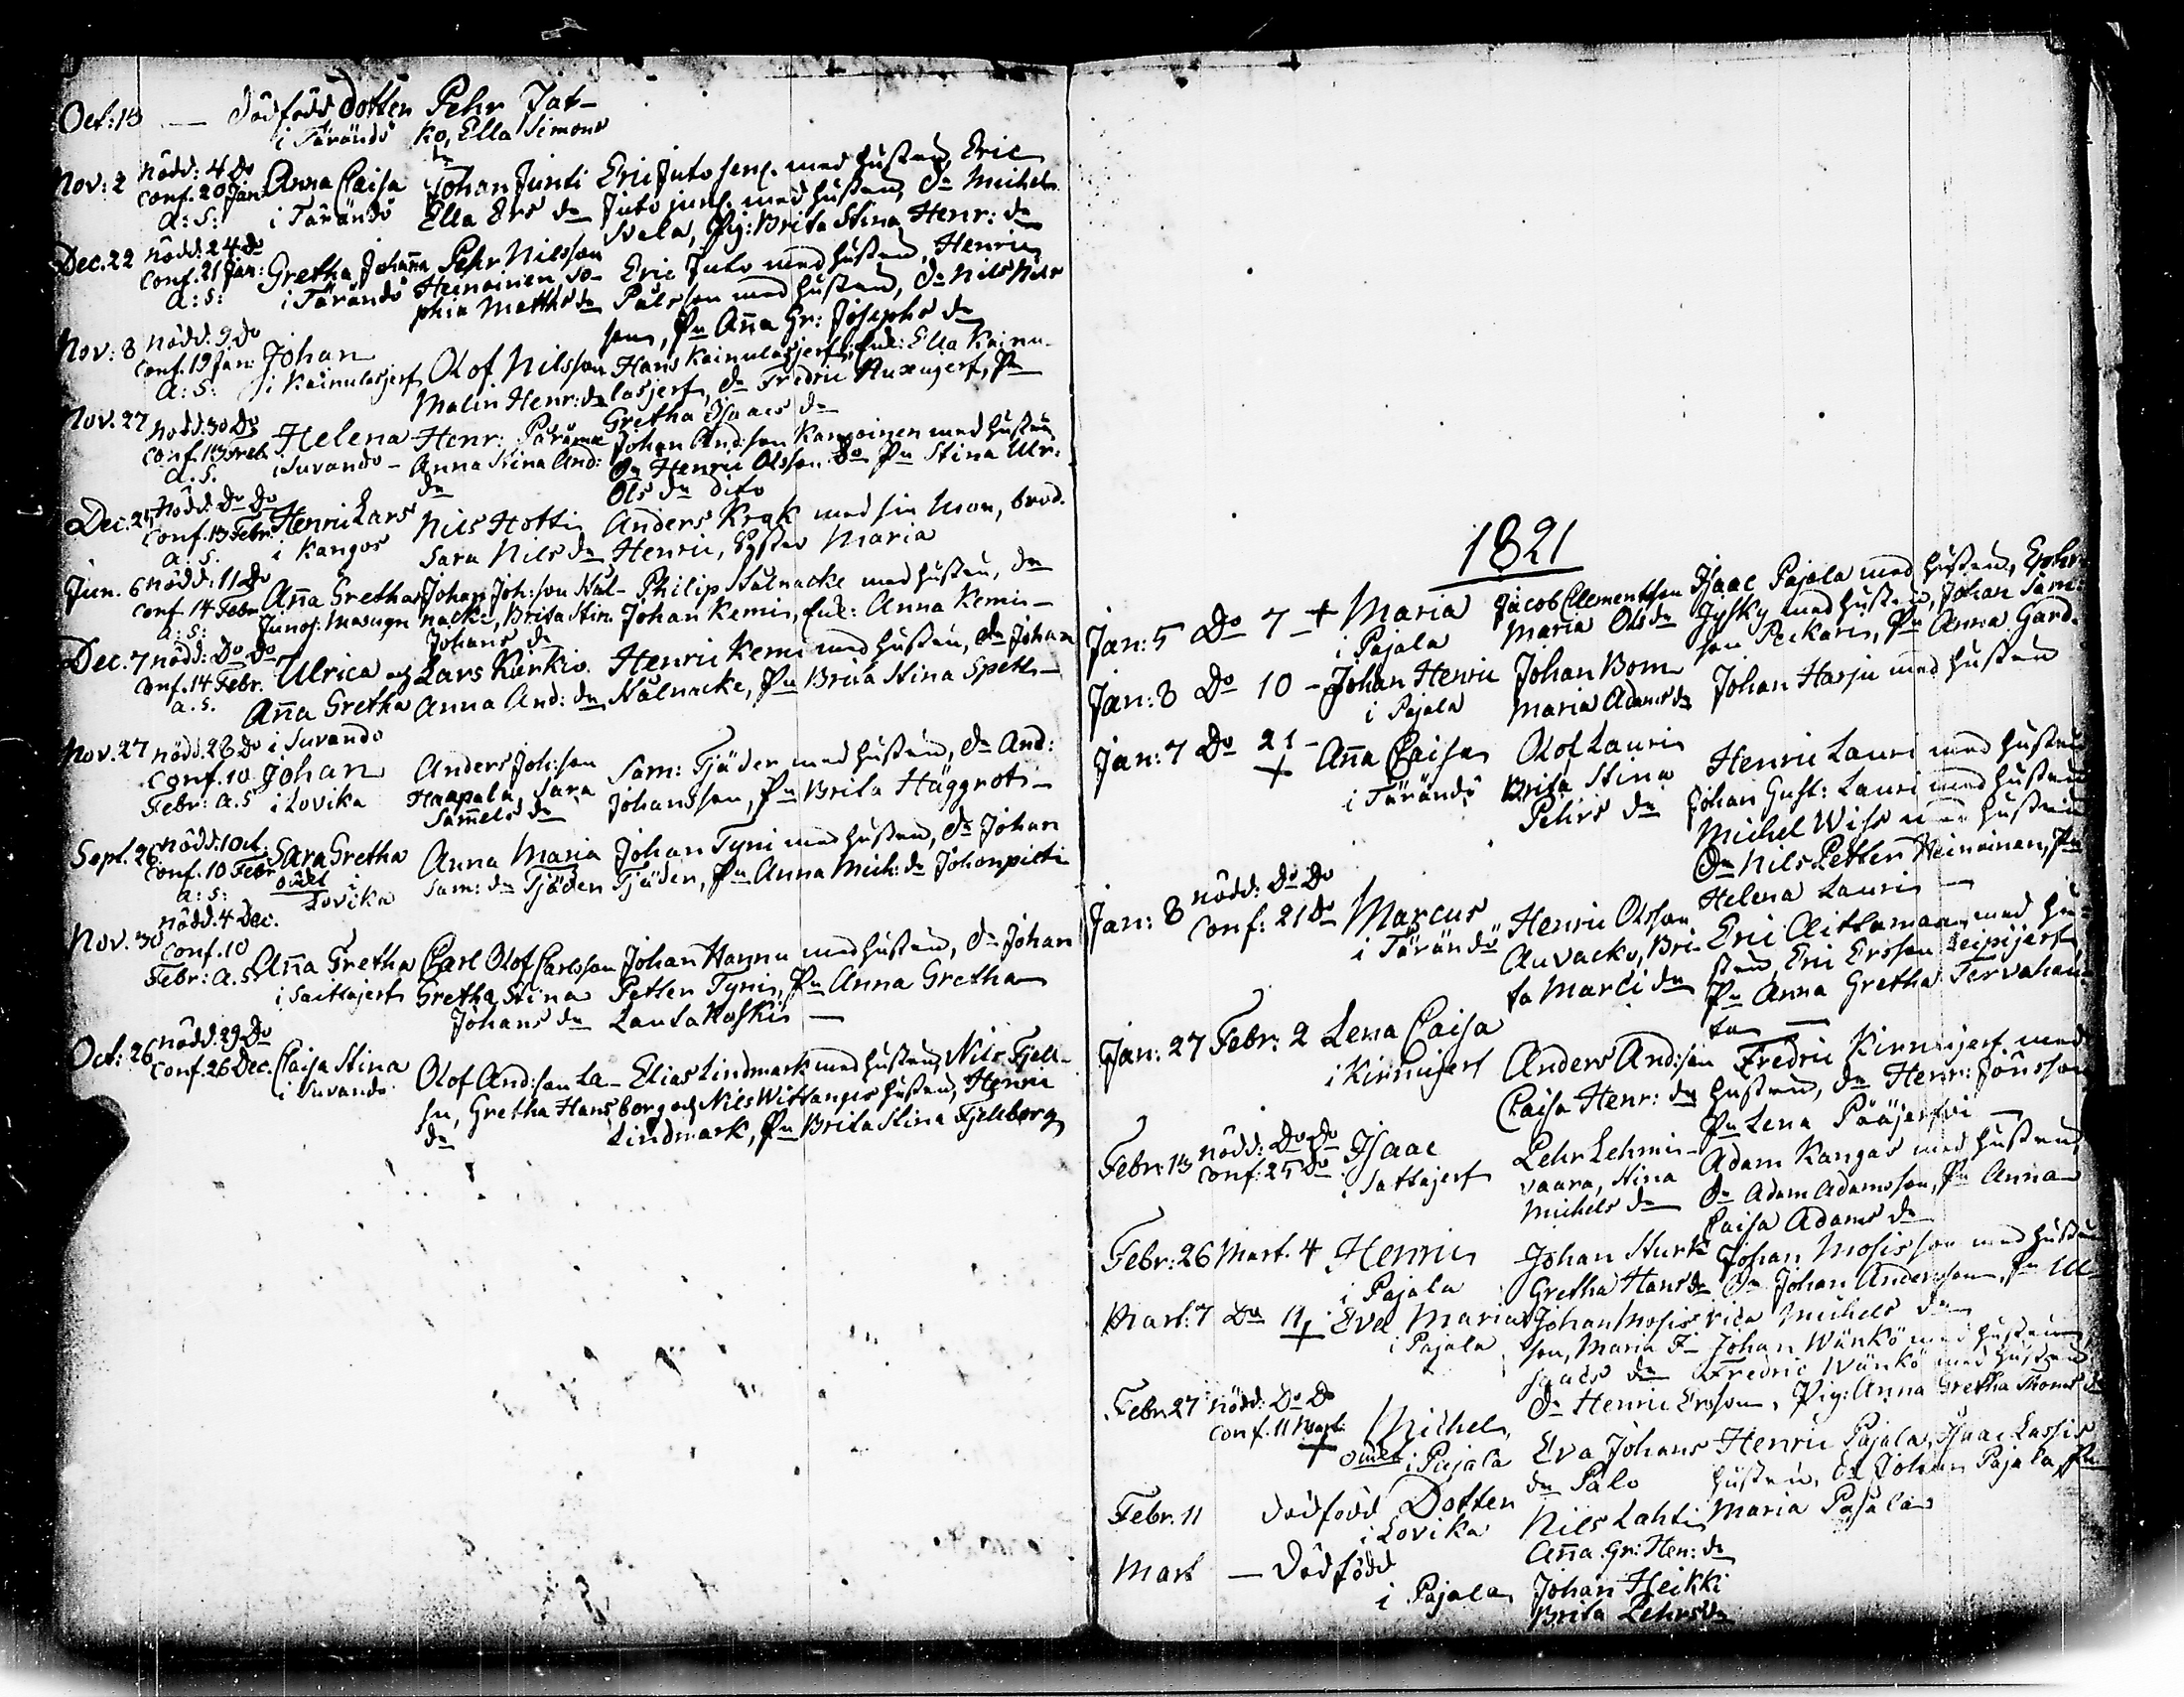 Oct: 13 — dödfödd dotter Pehr Jat-
i Tärändö ko, Ella Simons
dr
Nov: 2 nödd: 4 Do Anna Caisa Johan Junti Eric Juto sen. med hustru, Eric
Conf. 20 Jan: i Tärändö Ella Ers dr Juto jun. med hustru, Dr Michel
a: s: Vala, Pig: Brita Stina Henr: dr
Dec. 22 nödd: 24 do Gretha Johaña Pehr Nilsson Eric Juto med hustru, Henric
Conf. 21 Jan: i Tärändö Heinoinen, So- Pålsson med hustru, Dr Nils Nils
a: s: phia Matths dr son, Pn Aña Gr: Josephs dr
Nov: 8 nödd. 9 do Johan Olof Nilsson Hans Kainulasjerf, Enk: Ella Kainu-
Conf. 19 Jan: i Kainulasjerf Malin Henr: dr lasjerf, dr Fredric Ruxujerf, Pn
a: s: Gretha Isaacs dr
Nov. 27 nödd. 30 Do Helena Henr: Johan And:son Kangoinen med hustru
Conf. 13 Feb. i Suvando - Anna Stina And: Dr Henric Olsson Do Pn Stina Ulr:
a. s. dr Ols dr dito
Dec. 25 nödd: Do Do Henric Lars Nils Hotti Anders Krak med sin mor, brod.
Conf. 13 Febr. i Kangos Sara Nils dr Henric, Syster Maria
a. s.
Jan. 6 nödd: 11 Do Aña Gretha Johan Joh:son Nål- Philip Nålnacke med hustru, dr
Conf. 14 Febr. Junos: Masugn nacke, Brita Stin. Johan Kemi, Enk: Anna Kemi —
a: s: Johans dr
Dec. 7 nödd: Do Do Ulrica och Lars Kerkio Henric Kemi med hustru, dr Johan
Conf. 14 Febr. Aña Gretha Anna And: dr Nålnacke, Pn Brita Stina Spets —
a. s. i Suvando
Nov. 27 nödd. 28 Do Johan Anders Joh:son Sam: Tjäder med hustru, dr And:
Conf. 10 i Lovika Haapala, Sara Johansson, Pn Brita Häggrot —
Febr: a. s Samels dr
Sept. 26 nödd: 1 Oct. Sara Gretha Anna Maria Johan Tyni med hustru, dr Johan
Conf. 10 Febr. oäkt Sam: dr Tjäder Tjäder, Pn Anna Mich: dr Johanpieti
a: s: Lovika
Nov. 30 nödd. 4 Dec. Aña Gretha Carl Olof Carlsson Johan Hannu med hustru, dr Johan
Conf. 10 i Saittajerf Gretha Stina Petter Tyni, Pn Anna Gretha
Febr: a. s Johans dr Lautakoski —
Oct: 26 nödd. 29 Do Caisa Stina Olof And:son La- Elias Lindmark med hustru, Nils Fjell-
Conf. 26 Dec. i Suvando su, Gretha Hans borg och Nils Wittangis hustru, Henric
dr Lindmark, Pn Brita Stina Fjellborg
1821
Jan: 5 Do 7 + Maria Jacob Clementsson Isaac Pajala med hustru, Ephr.
i Pajala Maria Ols dr Jysky med hustru, Johan Sam:
son Peckari, Pn Anna Gard.
Jan: 8 Do 10 - Johan Henric Johan Bom Johan Harju med hustru
i Pajala Maria Adams dr
Jan: 7 Do 21 - Aña Caisa Olof Lauri Henric Lauri med hustru
+ i Tärändö Brita Stina Johan Gust: Lauri med hustru
Pehrs dr Michel Wiss med hustru
Dr Nils Petter Heinoinen, Pn
Helena Lauri —
Jan: 8 nödd: Do Do Marcus Henric Olsson Eric Aittamaa med hu-
Conf: 21 Do i Tärändö Auvacko, Bri- stru, Eric Ersson Leipijerf
ta Marci dr Pn Anna Gretha Tervahau-
ta —
Jan: 27 Febr: 2 Lena Caisa Anders And:son Fredric Kirnujerf med
i Kirnujerf Caisa Henr: dr hustru, dr Henr: Jönsson
Pn Lena Pääjerfvi —
Febr: 13 nödd: Do Do Isaac Pehr Lehmi- Adam Kangas med hustru
Conf: 25 Do i Sattajerf vaara, Stina Dr Adam Adamsson, Pn Anna
Michels dr Caisa Adams dr
Febr: 26 Mart. 4 Henric Johan Sturk Johan Mosisson med hustru
i Pajala Gretha Hans dr Dr Johan Andersson, Pn Ul-
Mart: 7 Do 11 + Eva Maria Johan Mosis rica Michels dr
i Pajala son, Maria I- Johan Wänkö med hustru
saacs dr Fredric Wänkö med hustru
Dr Henric Ersson, Pig: Anna Gretha Thoms dr
Febr: 27 nödd: Do Do Michel Eva Johans Henric Pajala, Isaac Lassis
Conf. 11 Mart: + oäkta i Pajala dr Palo hustru, Dr Johan Pajala, Pn
Maria Pajala
Febr. 11 dödfödd Dotter Nils Lahti
i Lovika Aña Gr: Hen: dr
Mart — Dödfödd Johan Heikki
i Pajala Brita Pehrs dr